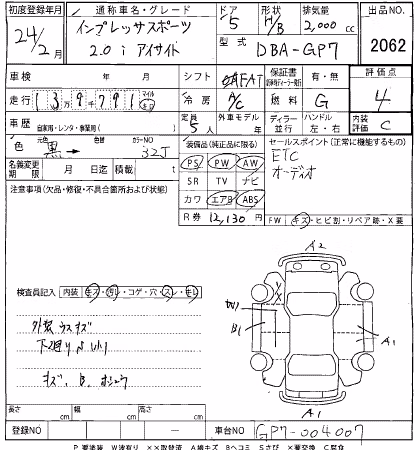 初度登録年月 通称車名・グレード ドア 形状 排気量 出品NO.
24/2月 インプレッサスポーツ 2.0 i アイサイト 5 H/B 2,000cc 2062
型式 DBA-GP7
車検 年 月 シフト FAT 保証書 有・無 評価点
走行 139791 マイル km 冷房 A/C 燃料 G 4
車歴 自家用・レンタ・事業用( ) 定員 5人 外車モデル 年 ディーラー 並行 ハンドル 左・右 内装評価 C
色 黒→ 色替 カラーNO 32J 装備品(純正品に限る) セールスポイント(正常に機能する)
名義変更期限 月 日迄 積載 t PS PW AW ETC
注意事項(欠品・修復・不具合箇所および状態) SR TV ナビ オーディオ
カワ エアB ABS
R券 12,130円 FW キズ・ヒビ割・リペア跡・X要
A2
検査員記入 内装 キズ・汚レ・コゲ・穴・スレ・キレ
外装 ウスキズ
B1
A1
キズ、B、
A1
長さ cm 幅 cm 高さ cm
登録NO 車台NO GP7-004007
P 要塗装 W波有り ××取替済 A線キズ Bヘコミ Sさび ×要交換 C腐食